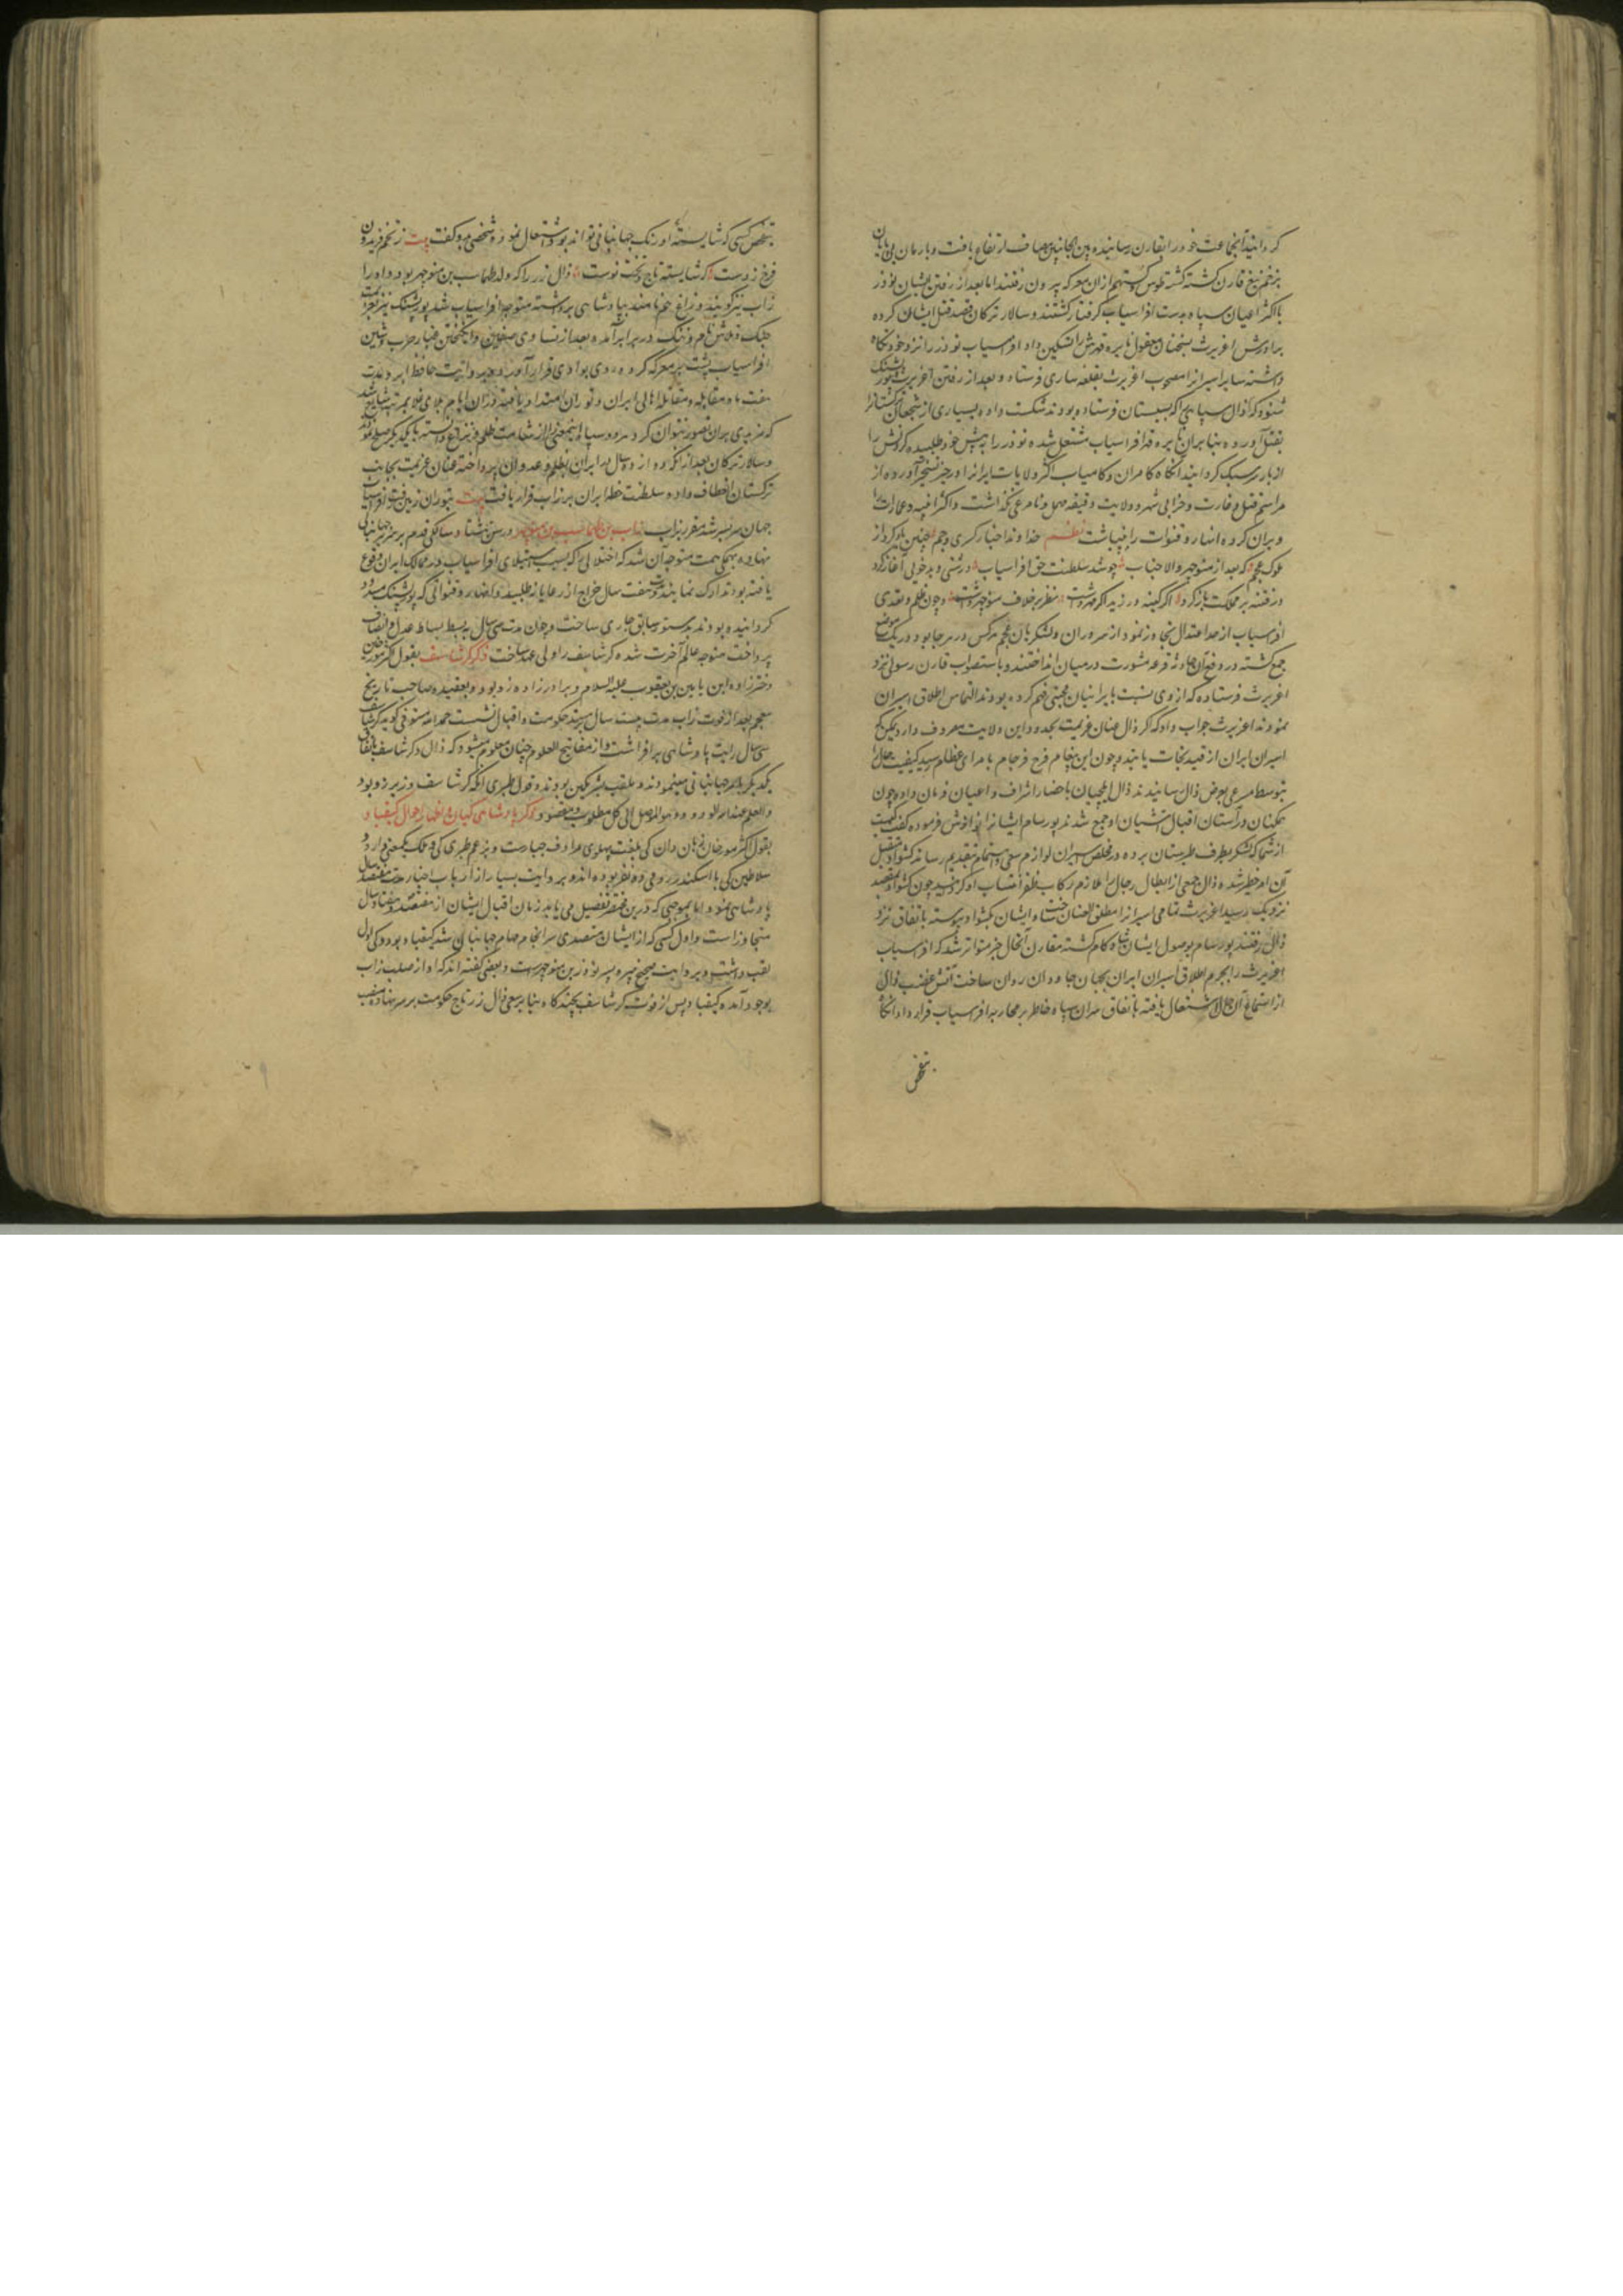 گردانیند انجماعت خود را بقارن رسانیده بین الجانبین مصاف ارتفاع یافت و بارمان بی
بزخم تیغ قارن کشته کشته طوس و کستهم از ان معرکه بیرون رفتند اما بعد از رفتن ایشان نوذر
با اکثر اعیان سپاه بدست افراسیاب کرفتار کشتند و سالار ترکان قصد قتل ایشان کرده
برادرش اغریرث بسخنان معقول نایره قهرش را تسکین داد افراسیاب نوذر را نزد خود نکاه
داشته سایر اسیرانرا مصحوب اغریرث بقلعه ساری فرستاد و بعد از رفتن اغریرث پور پشنک
شنود که زال سپاهی را که بسیستان فرستاده بودند شکست داده بسیاری از شجعان
بقتل آورده بنابران نایره قهر افراسیاب مشتعل شده نوذر را به پیش خود طلبیده کردنش را
از بار سر سبک کردانید آنکاه کامران و کامیاب اکثر ولایات ایرانرا در حیز تسخیر آورده از
مراسم قتل و غارت و خرابی شهر و ولایت دقیقه مهمل و نامرعی نکذاشت و اکثر ابنیه و عمارات را
ویران کرده انهار و قنوات را بینباشت نظم خداوند اخبار کسری و جم چنین یاد کرد از
ملوک عجم که بعد از منوچهر والا جناب چو شد سلطنت حق افراسیاب درشتی و بدخویی آغاز کرد
در فتنه بر مملکت باز کرد اکر کینه ورزید اکر مهر داشت نظر بر خلاف منوچهر داشت و چون ظلم و تعدی
افراسیاب از حد اعتدال تجاوز نمود از سروران و لشکریان عجم هرکس در هر جا بود در یک موضع
جمع کشته در دفع آن حادثه قرعه مشورت در میان انداختند و باستصواب قارن رسولی نزد
اغریرث فرستاده که از وی نسبت بایرانیان محبتی فهم کرده بودند التماس اطلاق اسیران
نمودند اغریرث جواب داد که اکر زال عنان عزیمت بحدود این ولایت معروف دارد یمکن که
اسیران ایران از قید نجات یابند و چون این پیغام فرخ فرجام بامرای عظام رسید کیفیت حال را
بتوسط مسرعی بعرض زال رسانیدند زال پهلوان باحضار اشراف و اعیان فرمان داد و چون
همکنان در آستان اقبال آشیان او جمع شدند پور سام ایشانرا نوازش فرموده کفت کیست
از شما که لشکر بطرف طبرستان برده در تخلص اسیران لوازم سعی و اهتمام بتقدیم رساند کشواد متقبل
آن امر خطیر شده زال جمعی از ابطال رجال را ملازم رکاب ظفر انتساب او کردانید چون کشواد بمقصد
نزدیک رسید اغریرث تمامی اسیرانرا مطلق العنان ساخت و ایشان بکشواد پیوسته باتفاق نزد
زال رفتند پور سام بوصول ایشان شاه کام کشته مقارن آنحال خبر متواتر شد که افراسیاب
اغریرث را بجرم اطلاق اسیران ایران بجهان جاودان روان ساخت آتش غضب زال
از استماع آن حال اشتعال یافته باتفاق سران سپاه خاطر بر محاربه افراسیاب قرار داد انکاه
بتفحص
بتفحص کسی که شایسته اورنک جهانبانی تواند بود اشتعال نمود و شخصی مرو کفت بیت ز تخم فریدون
فرخ زوست که شایسته تاج و تخت نوست زال زر زاب را که ولد طهماسب بن منوچهر بود و او را
زاب نیز کویند و زاغ هم نامند بپادشاهی برداشته متوجه افراسیاب شد پور پشنک نیز بعزیمت
جنک و تلاش نام و ننک در برابر آمده بعد از تساوی صفوف و انکیختن غبار حرب و شین
افراسیاب پشت بر معرکه کرده روی بوادی فرار آورد و بروایت حافظ ابرو مدت
هفت ماه مقابله و مقاتله اهالی ایران و توران امتداد یافته در ان ایام بلای غلا بمرتبه رسید
که مزیدی بران تصور نتوان کرد هر دو سپاه اینمعنی را از شئامت ظلم و نزاع دانسته با یکدیکر صلح نمودند
و سالار ترکان بعد از انکه دوازده سال در ایران بظلم و عدوان پرداخته عنان عزیمت بجانب
ترکستان انعطاف داد و سلطنت خطه ایران بر زاب قرار یافت بیت بتوران زمین رفت افراسیاب
جهان سر بسر شد مقرر بزاب زاب بن طهماسب بن منوچهر در سن هشتاد سالکی قدم بر سریر جهانبانی
نهاده بهمکی همت متوجه آن شد که اختلالی را که بسبب استیلای افراسیاب در ممالک ایران وقوع
یافته بود تدارک نماید و مدت هفت سال خراج از رعایا نطلبید و انهار و قنواتی که پور پشنک مسدود
کردانیده بود بدستور سابق جاری ساخت و چون مدت سی سال به بسط بساط عدل و انصاف
پرداخت متوجه عالم آخرت شده کرشاسف را ولی عهد ساخت ذکر کرشاسف بقول اکثر مورخین
دخترزاده ابن یامین بن یعقوب علیه السلام و برادرزاده زو بود و بعقیده صاحب تاریخ
معجم بعد از فوت زاب مدت بیست سال بر مسند حکومت و اقبال نشست حمد الله مستوفی کوید کرشاسف
سی سال رایت پادشاهی برافراشت و از مفاتیح العلوم چنان معلوم میشود که زال و کرشاسف باتفاق
یکدیکر بامر جهانبانی قیام مینمودند و ملقب بشریکین بودند و قول طبری آنکه کرشاسف وزیر زو بود
والعلم عند الله الودود وهو الموصل الی کل مطلوب و مقصود ذکر پادشاهی کیان و اظهار احوال کیقباد
بقول اکثر مورخان سخن دان کی بلغت پهلوی مرادف جبارست و بزعم طبری کی و ملک یکمعنی دارد و
سلاطین کی با اسکندر رومی ده نفر بوده اند و بروایت بسیار از ارباب اخبار مدت هفتصد سال
پادشاهی نمودند اما بموجبی که درین مختصر تفصیل می یابد زمان اقبال ایشان از هفتصد و هفتاد سال
متجاوز است و اول کسی که از ایشان متصدی سرانجام مهام جهانبانی شد کیقباد بود و کی اول
لقب داشت و بروایت صحیح نبیره پسر نوذر بن منوچهرست و بعضی کفته اند که او از صلب زاب
بوجود آمده کیقباد پس از فوت کرشاسف بچند کاه بنابر سعی زال زر تاج حکومت بر سر نهاده